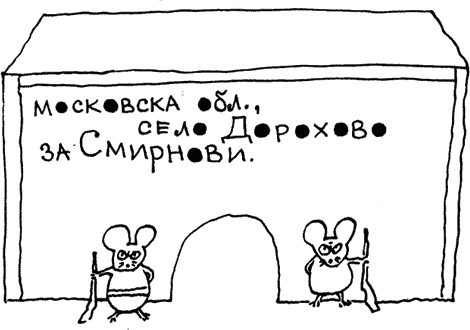 московска обл.,
село Дорохово
за Смирнови.